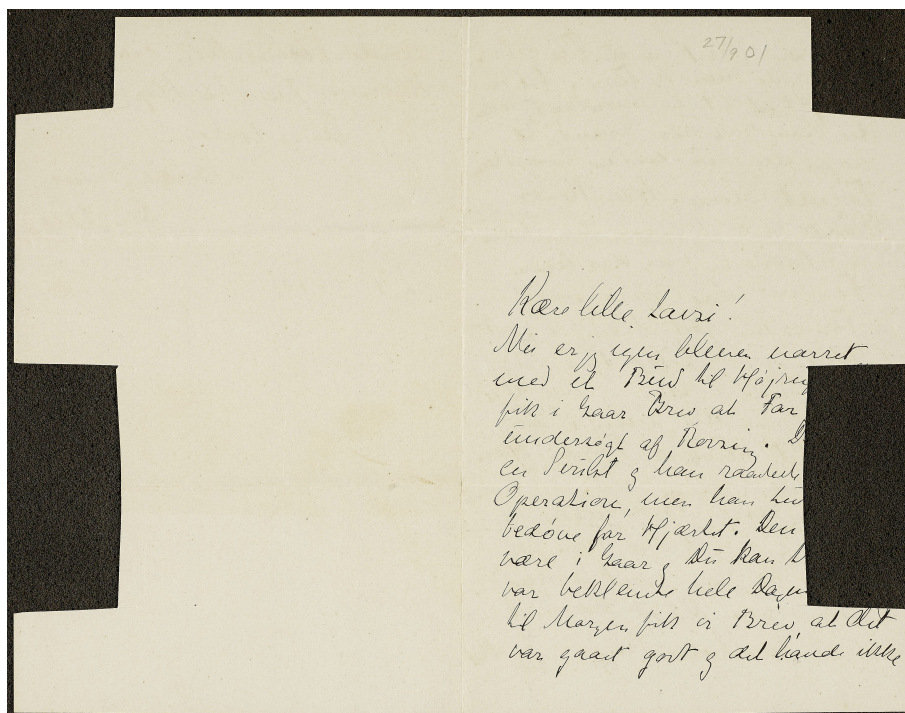 27/9 01
Kære lille Lavsi!
Nu er jeg igen bleven narret
med et Bud til Højru
fik i Gaar Brev at Far
undersøgt af Rovsing. D
en Svulst og han raadede
Operation, men han tu
bedøve for Hjærtet. Den
være i Gaar og Du kan D
var beklemt hele Dagen
til Morgen fik vi Brev, at det
var gaaet godt og det havde ikke